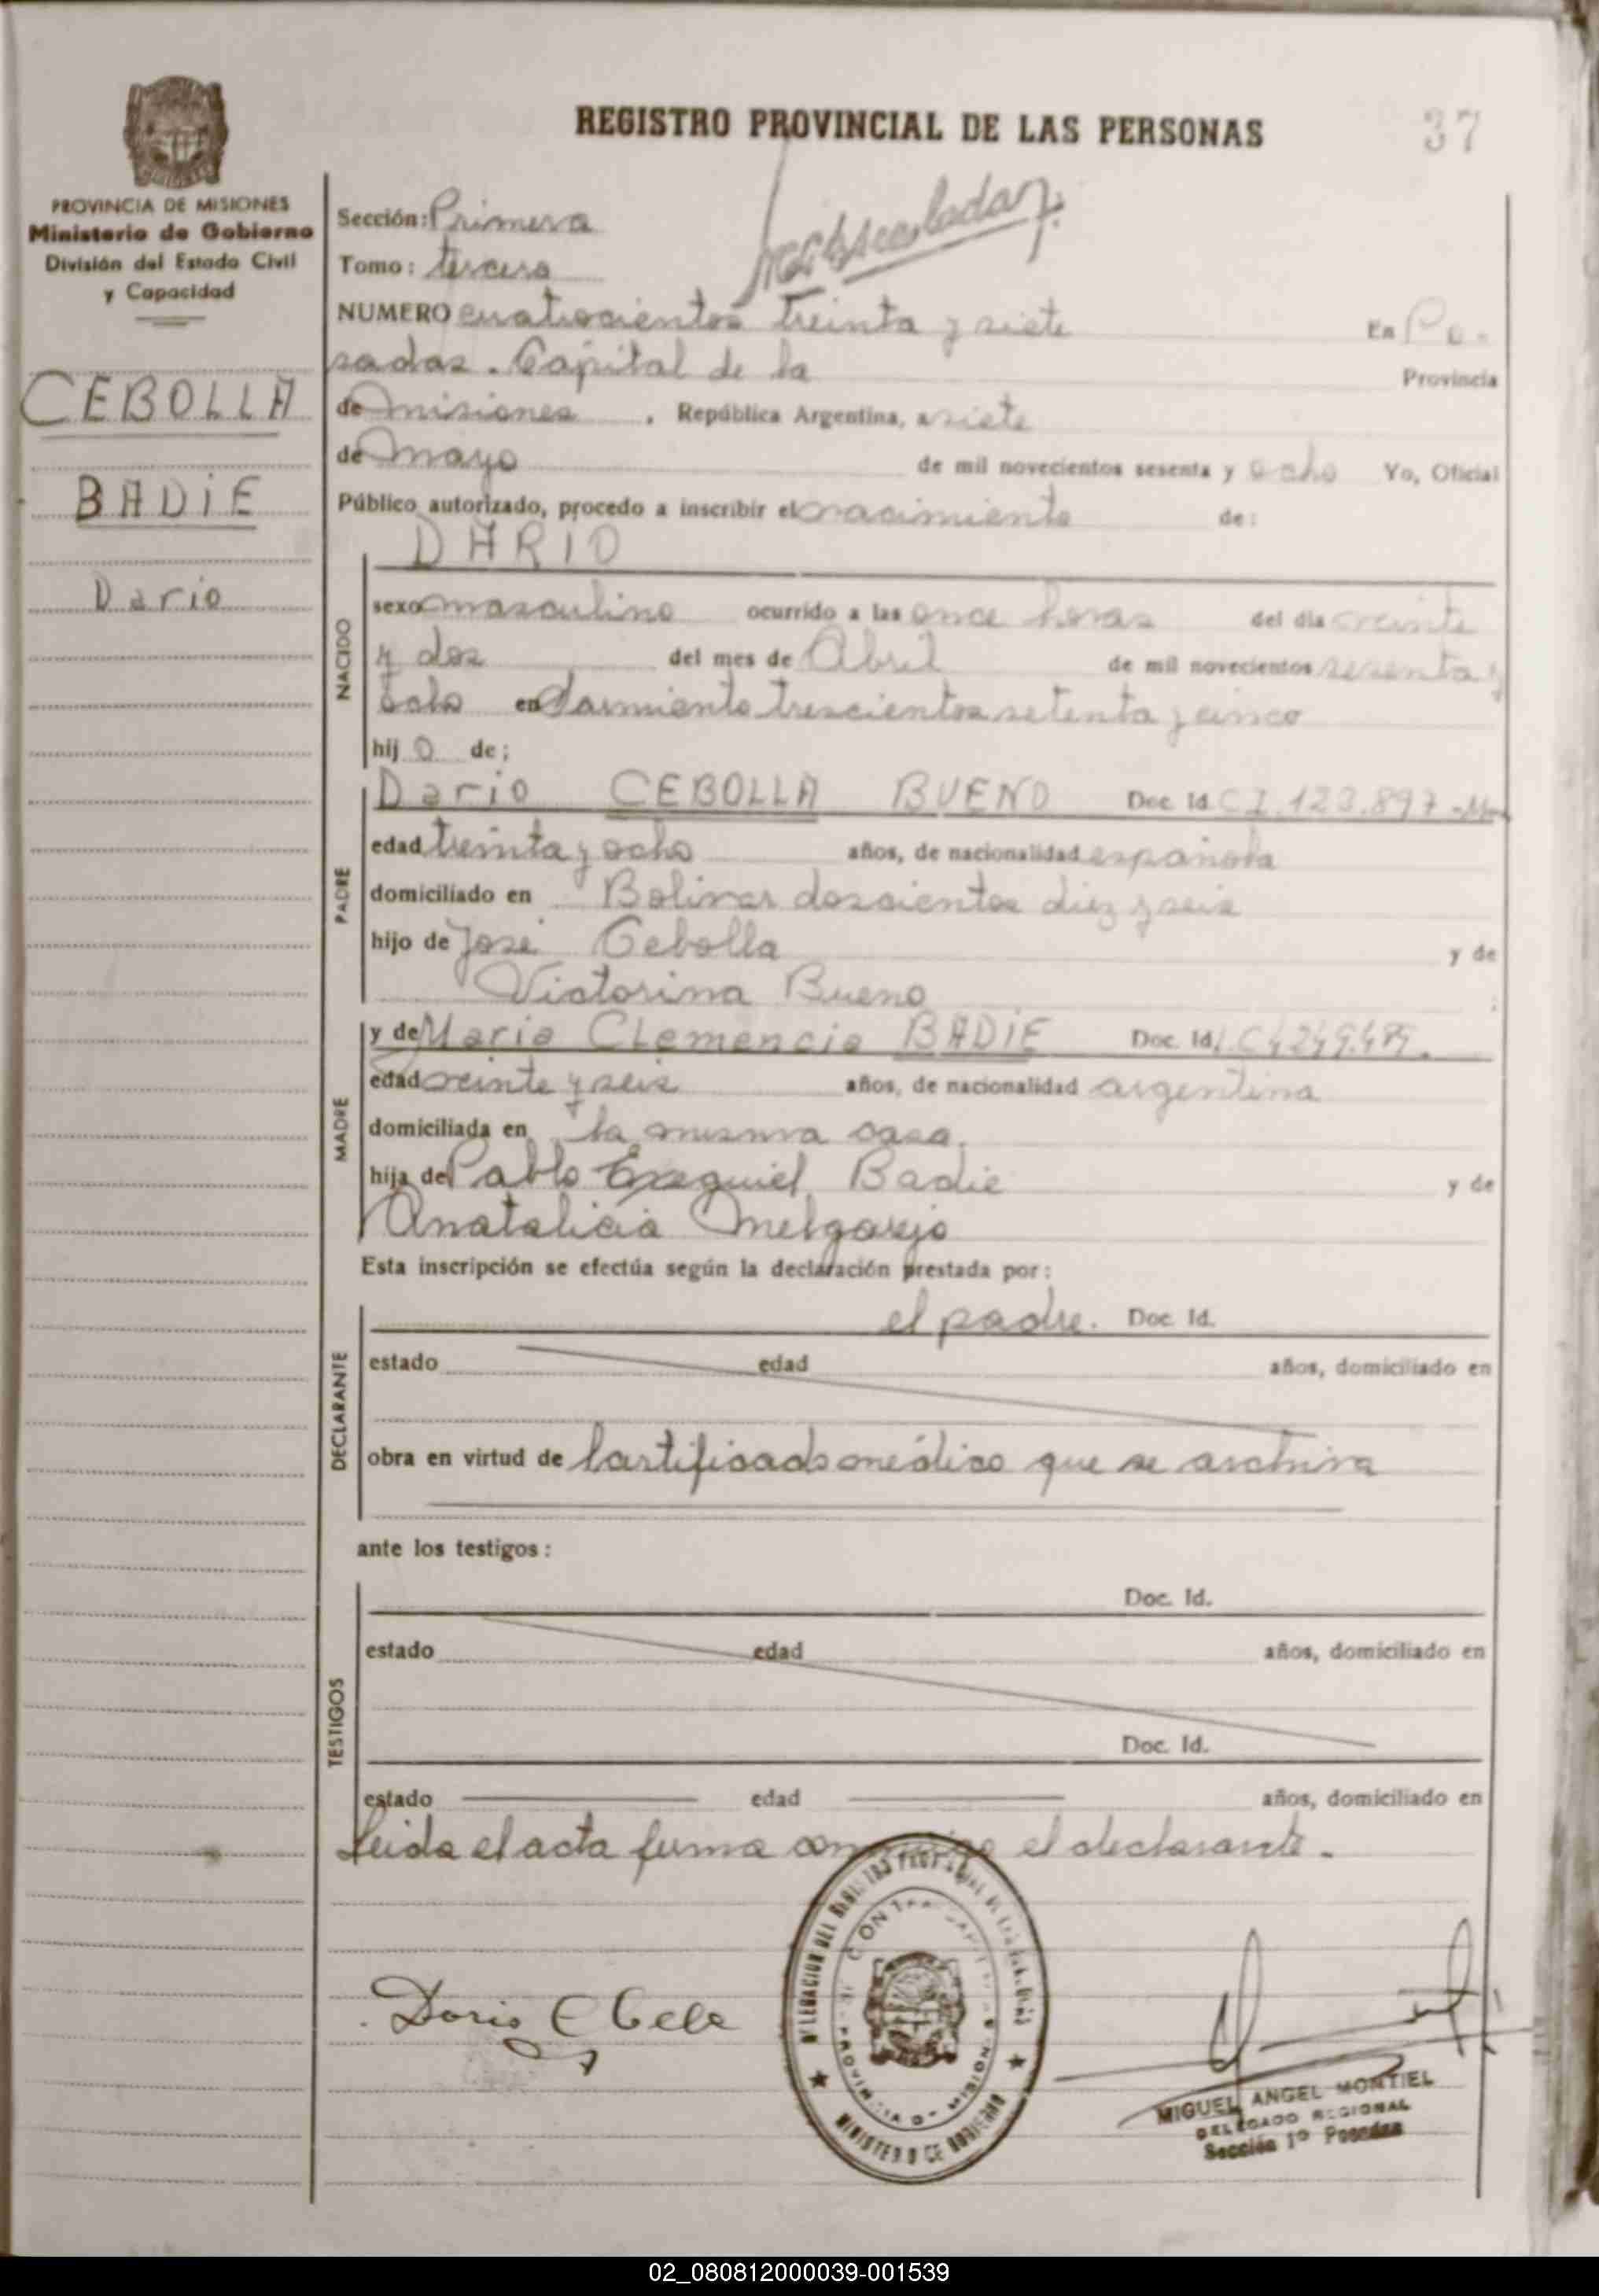 REGISTRO PROVINCIAL DE LAS PERSONAS
37
PROVINCIA DE MISIONES
Ministerio de Gobierno
División del Estado Civil
y Capacidad
CEBOLLA
BADIE
Dario
Sección: Primera
Tomo: tercero
NUMERO cuatrocientos treinta y siete En Po-
sadas. Capital de la Provincia
de misiones, República Argentina, a siete
de mayo de mil novecientos sesenta y ocho Yo, Oficial
Público autorizado, procedo a inscribir el nacimiento de:
DARIO
NACIDO
sexo masculino ocurrido a las once horas del día veinte
y dos del mes de Abril de mil novecientos sesenta y
ocho en Sarmiento trescientos setenta y cinco
hij o de;
PADRE
Dario CEBOLLA BUENO Doc. Id. C I. 123.897
edad treinta y ocho años, de nacionalidad española
domiciliado en Bolivar doscientos diez y seis
hijo de José Cebolla y de
Victorina Bueno
MADRE
y de Maria Clemencia BADIE Doc. Id.
edad veinte y seis años, de nacionalidad argentina
domiciliada en la misma casa.
hija de Pablo Exequiel Badie y de
Anatalicia Melgarejo
Esta inscripción se efectúa según la declaración prestada por:
DECLARANTE
el padre. Doc. Id.
estado edad años, domiciliado en
obra en virtud de Certificado médico que se archiva
ante los testigos:
TESTIGOS
Doc. Id.
estado edad años, domiciliado en
Doc. Id.
estado edad años, domiciliado en
Leida el acta firma conmigo el declarante.
MINISTERIO DE GOBIERNO
MIGUEL ANGEL MONTIEL
DELEGADO REGIONAL
Sección 1º Posadas
02_080812000039-001539